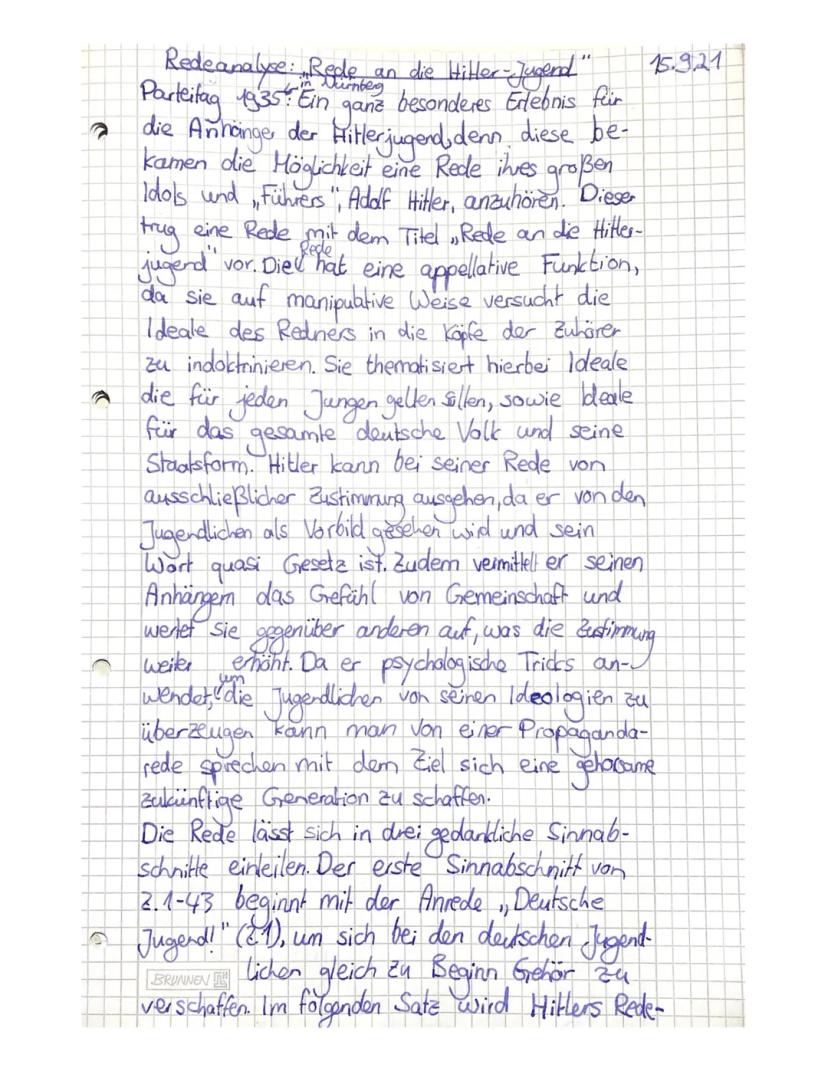 Redeanalyse: „Rede an die Hitler-Jugend" 15.9.21
in Nürnberg
Parteitag 1935: Ein ganz besonderes Erlebnis für
die Anhänger der Hitlerjugend, denn diese be-
kamen die Möglichkeit eine Rede ihres großen
Idols und „Führers", Adolf Hitler, anzuhören. Dieser
trug eine Rede mit dem Titel „Rede an die Hitler-
Rede
jugend" vor. Die hat eine appellative Funktion,
da sie auf manipulative Weise versucht die
Ideale des Redners in die Köpfe der Zuhörer
zu indoktrinieren. Sie thematisiert hierbei Ideale
die für jeden Jungen gelten sollen, sowie Ideale
für das gesamte deutsche Volk und seine
Staatsform. Hitler kann bei seiner Rede von
ausschließlicher Zustimmung ausgehen, da er von den
Jugendlichen als Vorbild gesehen wird und sein
Wort quasi Gesetz ist. Zudem vermittelt er seinen
Anhängern das Gefühl von Gemeinschaft und
wertet sie gegenüber anderen auf, was die Zustimmung
weiter erhöht. Da er psychologische Tricks an-
um
wendet, die Jugendlichen von seinen Ideologien zu
überzeugen kann man von einer Propaganda-
rede sprechen mit dem Ziel sich eine gehorsame
zukünftige Generation zu schaffen.
Die Rede lässt sich in drei gedankliche Sinnab-
schnitte einteilen. Der erste Sinnabschnitt von
Z.1-43 beginnt mit der Anrede „Deutsche
Jugend!" (Z.1), um sich bei den deutschen Jugend-
BRUNNEN lichen gleich zu Beginn Gehör zu
verschaffen. Im folgenden Satz wird Hitlers Rede-